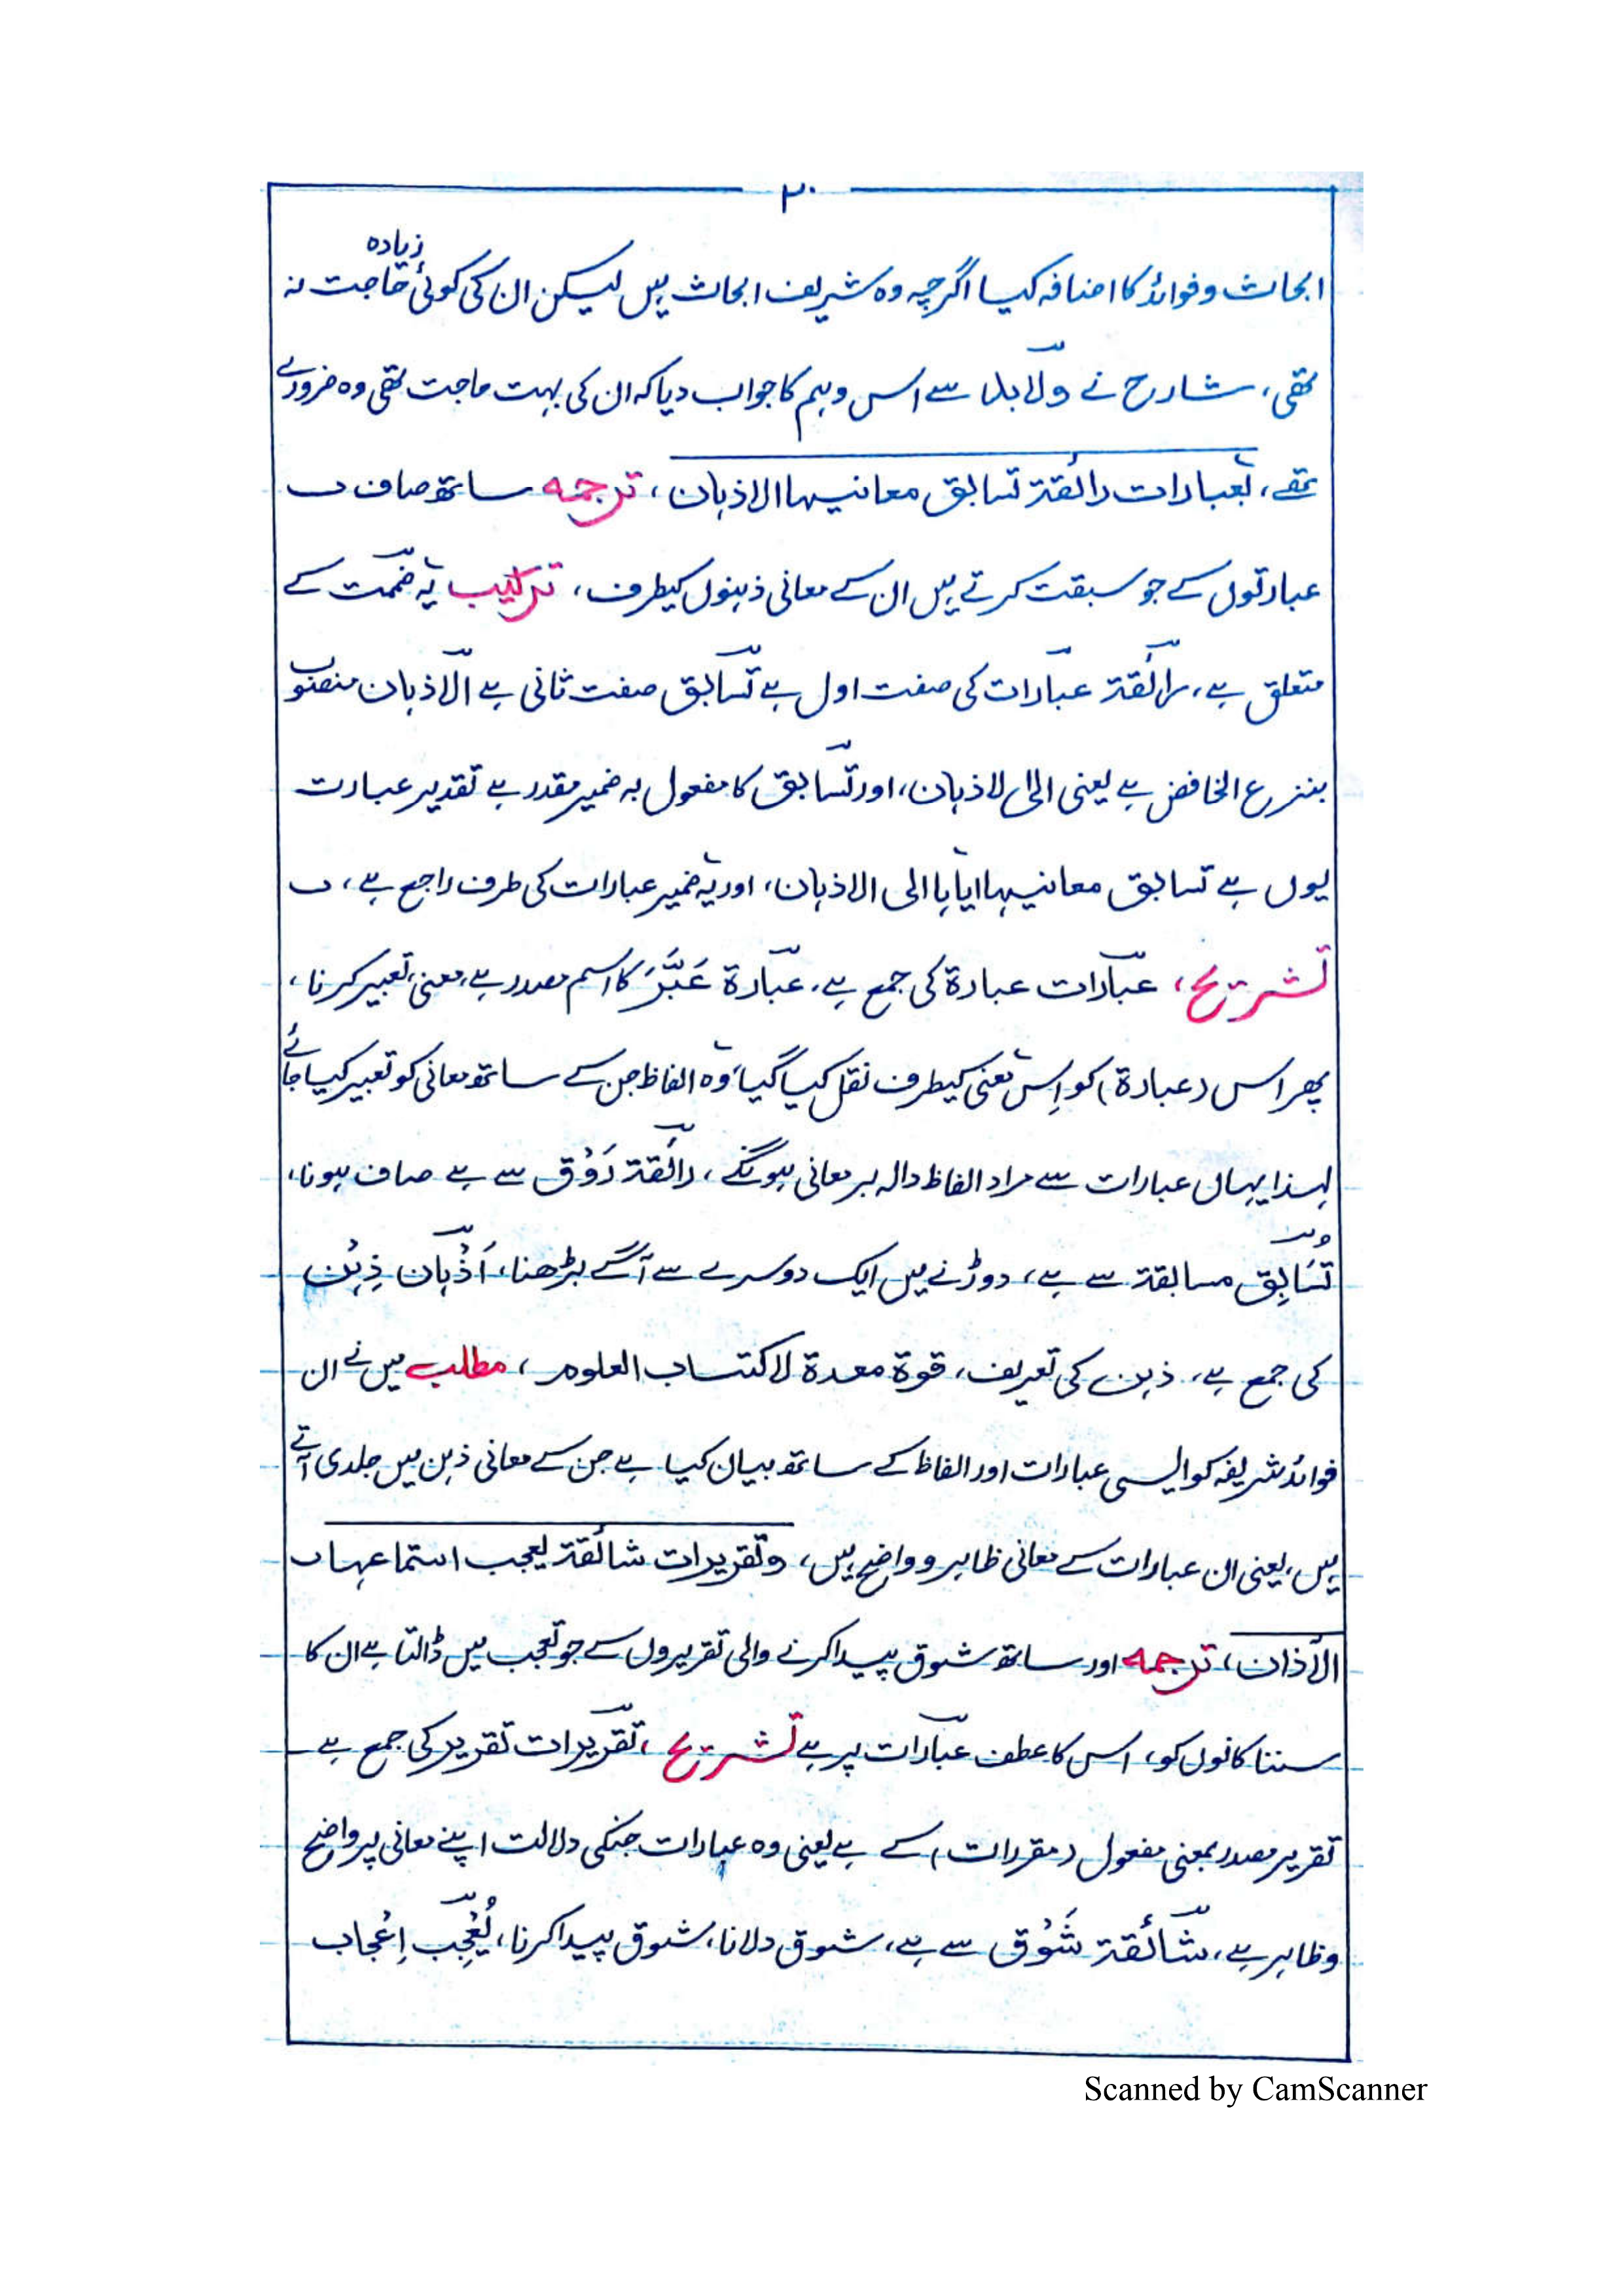 ۲۰
ابحاث و فوائد کا اضافہ کیا اگرچہ وہ شریف ابحاث ہیں لیکن ان کی کوئی زیادہ حاجت نہ
تھی، شارح نے ولابد سے اس وہم کا جواب دیا کہ ان کی بہت حاجت تھی وہ ضروری
تھے، بعبارات رائقۃ تسابق معانیہا الاذہان، ترجمہ ساتھ صاف
عبارتوں کے جو سبقت کرتے ہیں ان کے معانی ذہنوں کیطرف، ترکیب یہ ضمت کے
متعلق ہے، رائقۃ عبارات کی صفت اول ہے تسابق صفت ثانی ہے الاذہان منصوب
بنزع الخافض ہے یعنی الی الاذہان، اور تسابق کا مفعول بہ ضمیر مقدر ہے تقدیر عبارت
یوں ہے تسابق معانیہا ایاہا الی الاذہان، اور یہ ضمیر عبارات کی طرف راجع ہے،
تشریح، عبارات عبارۃ کی جمع ہے، عبارۃ عَبَّرَ کا اسم مصدر ہے، معنی تعبیر کرنا،
پھر اس (عبارۃ) کو اِس معنی کیطرف نقل کیا گیا، وہ الفاظ جن کے ساتھ معانی کو تعبیر کیا جائے
لہذا یہاں عبارات سے مراد الفاظ دالہ بر معانی ہونگے، رائقۃ رَوْق سے ہے صاف ہونا،
تُسَابِق مسابقۃ سے ہے، دوڑنے میں ایک دوسرے سے آگے بڑھنا، اَذْہان ذِہْن
کی جمع ہے، ذہن کی تعریف، قوۃ معدۃ لاکتساب العلوم، مطلب میں نے ان
فوائد شریفہ کو ایسی عبارات اور الفاظ کے ساتھ بیان کیا ہے جن کے معانی ذہن میں جلدی آتے
ہیں، یعنی ان عبارات کے معانی ظاہر و واضح ہیں، وتقریرات شائقۃ یعجب استماعہا
الآذان، ترجمہ اور ساتھ شوق پیدا کرنے والی تقریروں کے جو تعجب میں ڈالتا ہے ان کا
سننا کانوں کو، اس کا عطف عبارات پر ہے تشریح، تقریرات تقریر کی جمع ہے
تقریر مصدر بمعنی مفعول (مقررات) کے ہے یعنی وہ عبارات جنکی دلالت اپنے معانی پر واضح
و ظاہر ہے، شائقۃ شَوْق سے ہے، شوق دلانا، شوق پیدا کرنا، یُعْجِب اِعْجاب
Scanned by CamScanner